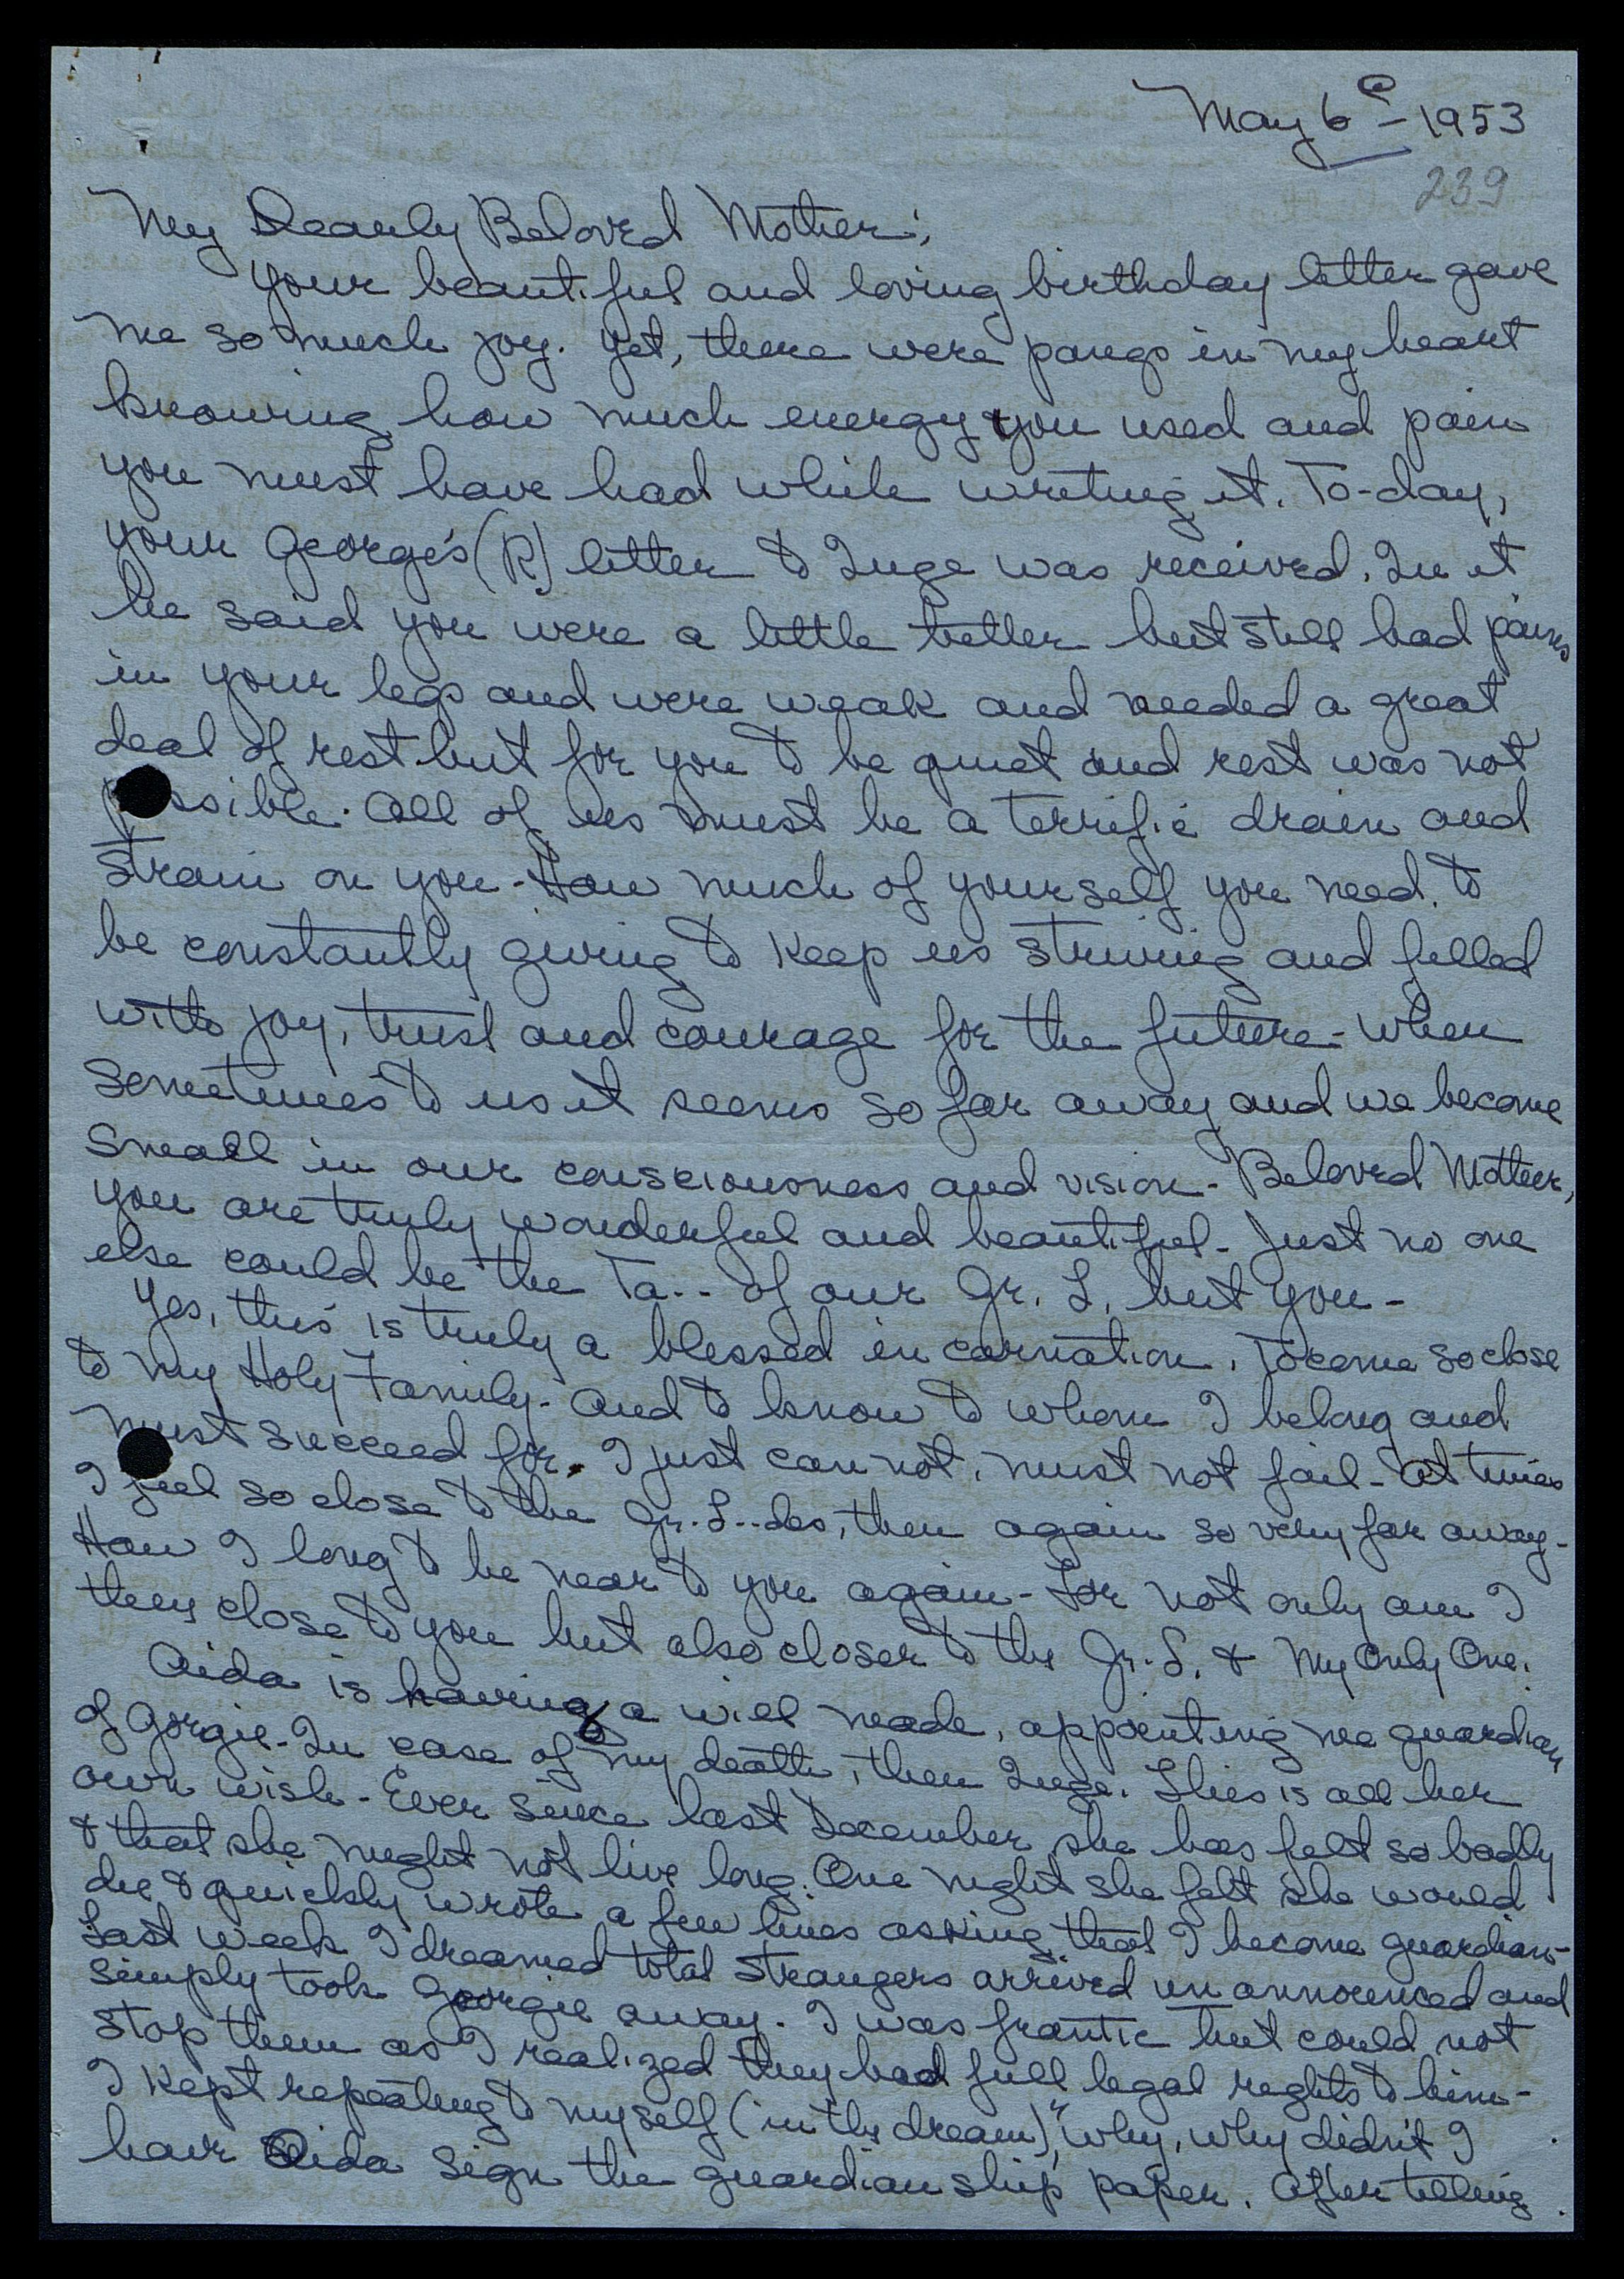 May 6 - 1953
239
My Dearly Beloved Mother;
Your beautiful and loving birthday letter gave
me so much joy. Yet, there were pangs in my heart
knowing how much energy you used and pain
you must have had while writing it. To-day,
your George's (R) letter to Inge was received. In it
he said you were a little better but still had pains
in your legs and were weak and needed a great
deal of rest but for you to be quiet and rest was not
possible. All of us must be a terrific drain and
strain on you - How much of yourself you need to
be constantly giving to keep us striving and filled
with joy, trust and courage for the future - when
sometimes to us it seems so far away and we become
small in our consciousness and vision - Beloved Mother,
you are truly wonderful and beautiful - Just no one
else could be the Ta.. of our Gr. L. but you -
Yes, this is truly a blessed incarnation. To come so close
to my Holy Family - and to know to whom I belong and
must succeed for. I just can not, must not fail - At times
I feel so close to the Gr. L..des, then again so very far away -
How I long to be near to you again - For not only am I
then close to you but also closer to the Gr. L. & My Only One.
Aida is having a will made, appointing me guardian
of Gorgie - In case of my death, then Inge. This is all her
own wish - Ever since last December she has felt so badly
& that she might not live long. One night she felt she would
die & quickly wrote a few lines asking that I become guardian -
Last week I dreamed total strangers arrived unannounced and
simply took Georgie away. I was frantic but could not
stop them as I realized they had full legal rights to him -
I kept repeating to myself (in the dream), "Why, why didn't I
have Aida sign the guardianship paper. After telling